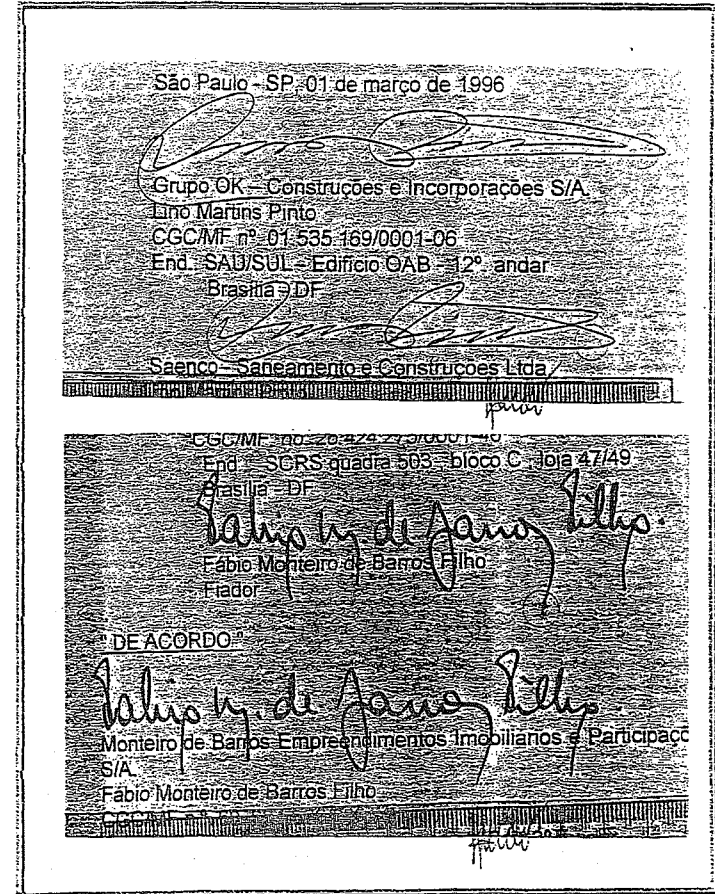 São Paulo - SP, 01 de março de 1996
Grupo OK – Construções e Incorporações S/A.
Lino Martins Pinto
CGC/MF nº 01.535.169/0001-06
End.: SAU/SUL – Edifício OAB - 12º andar
Brasília - DF
Saenco – Saneamento e Construções Ltda
Lino Martins Pinto
CGC/MF no.
End.: SCRS quadra 503 - bloco C, loja 47/49
Brasília - DF
Fabio M. de Barros Filho.
Fábio Monteiro de Barros Filho
Fiador
" DE ACORDO "
Fabio M. de Barros Filho.
Monteiro de Barros Empreendimentos Imobiliários e Participaçõ
S/A.
Fábio Monteiro de Barros Filho
CGC/MF nº